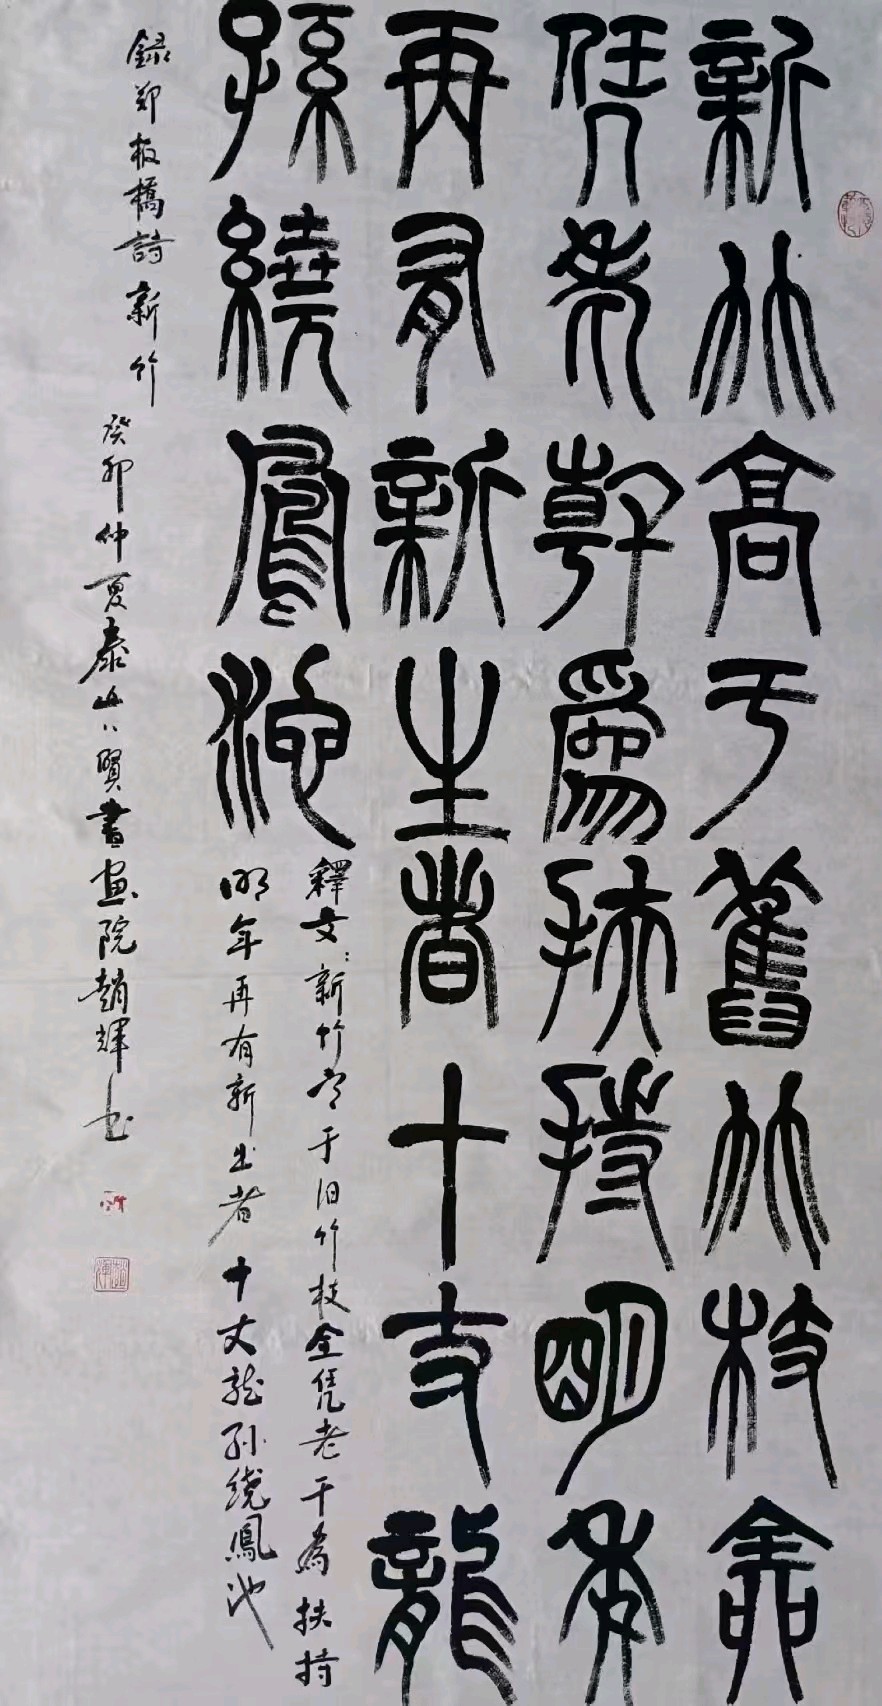 新竹高于舊竹枝全
凭老幹爲扶持明年
再有新生者十丈龍
孫繞鳳池
釋文：新竹高于旧竹枝全凭老干為扶持
明年再有新生者十丈龙孙绕鳳池
録郑板橋詩新竹
癸卯仲夏泰山八賢書画院趙輝书